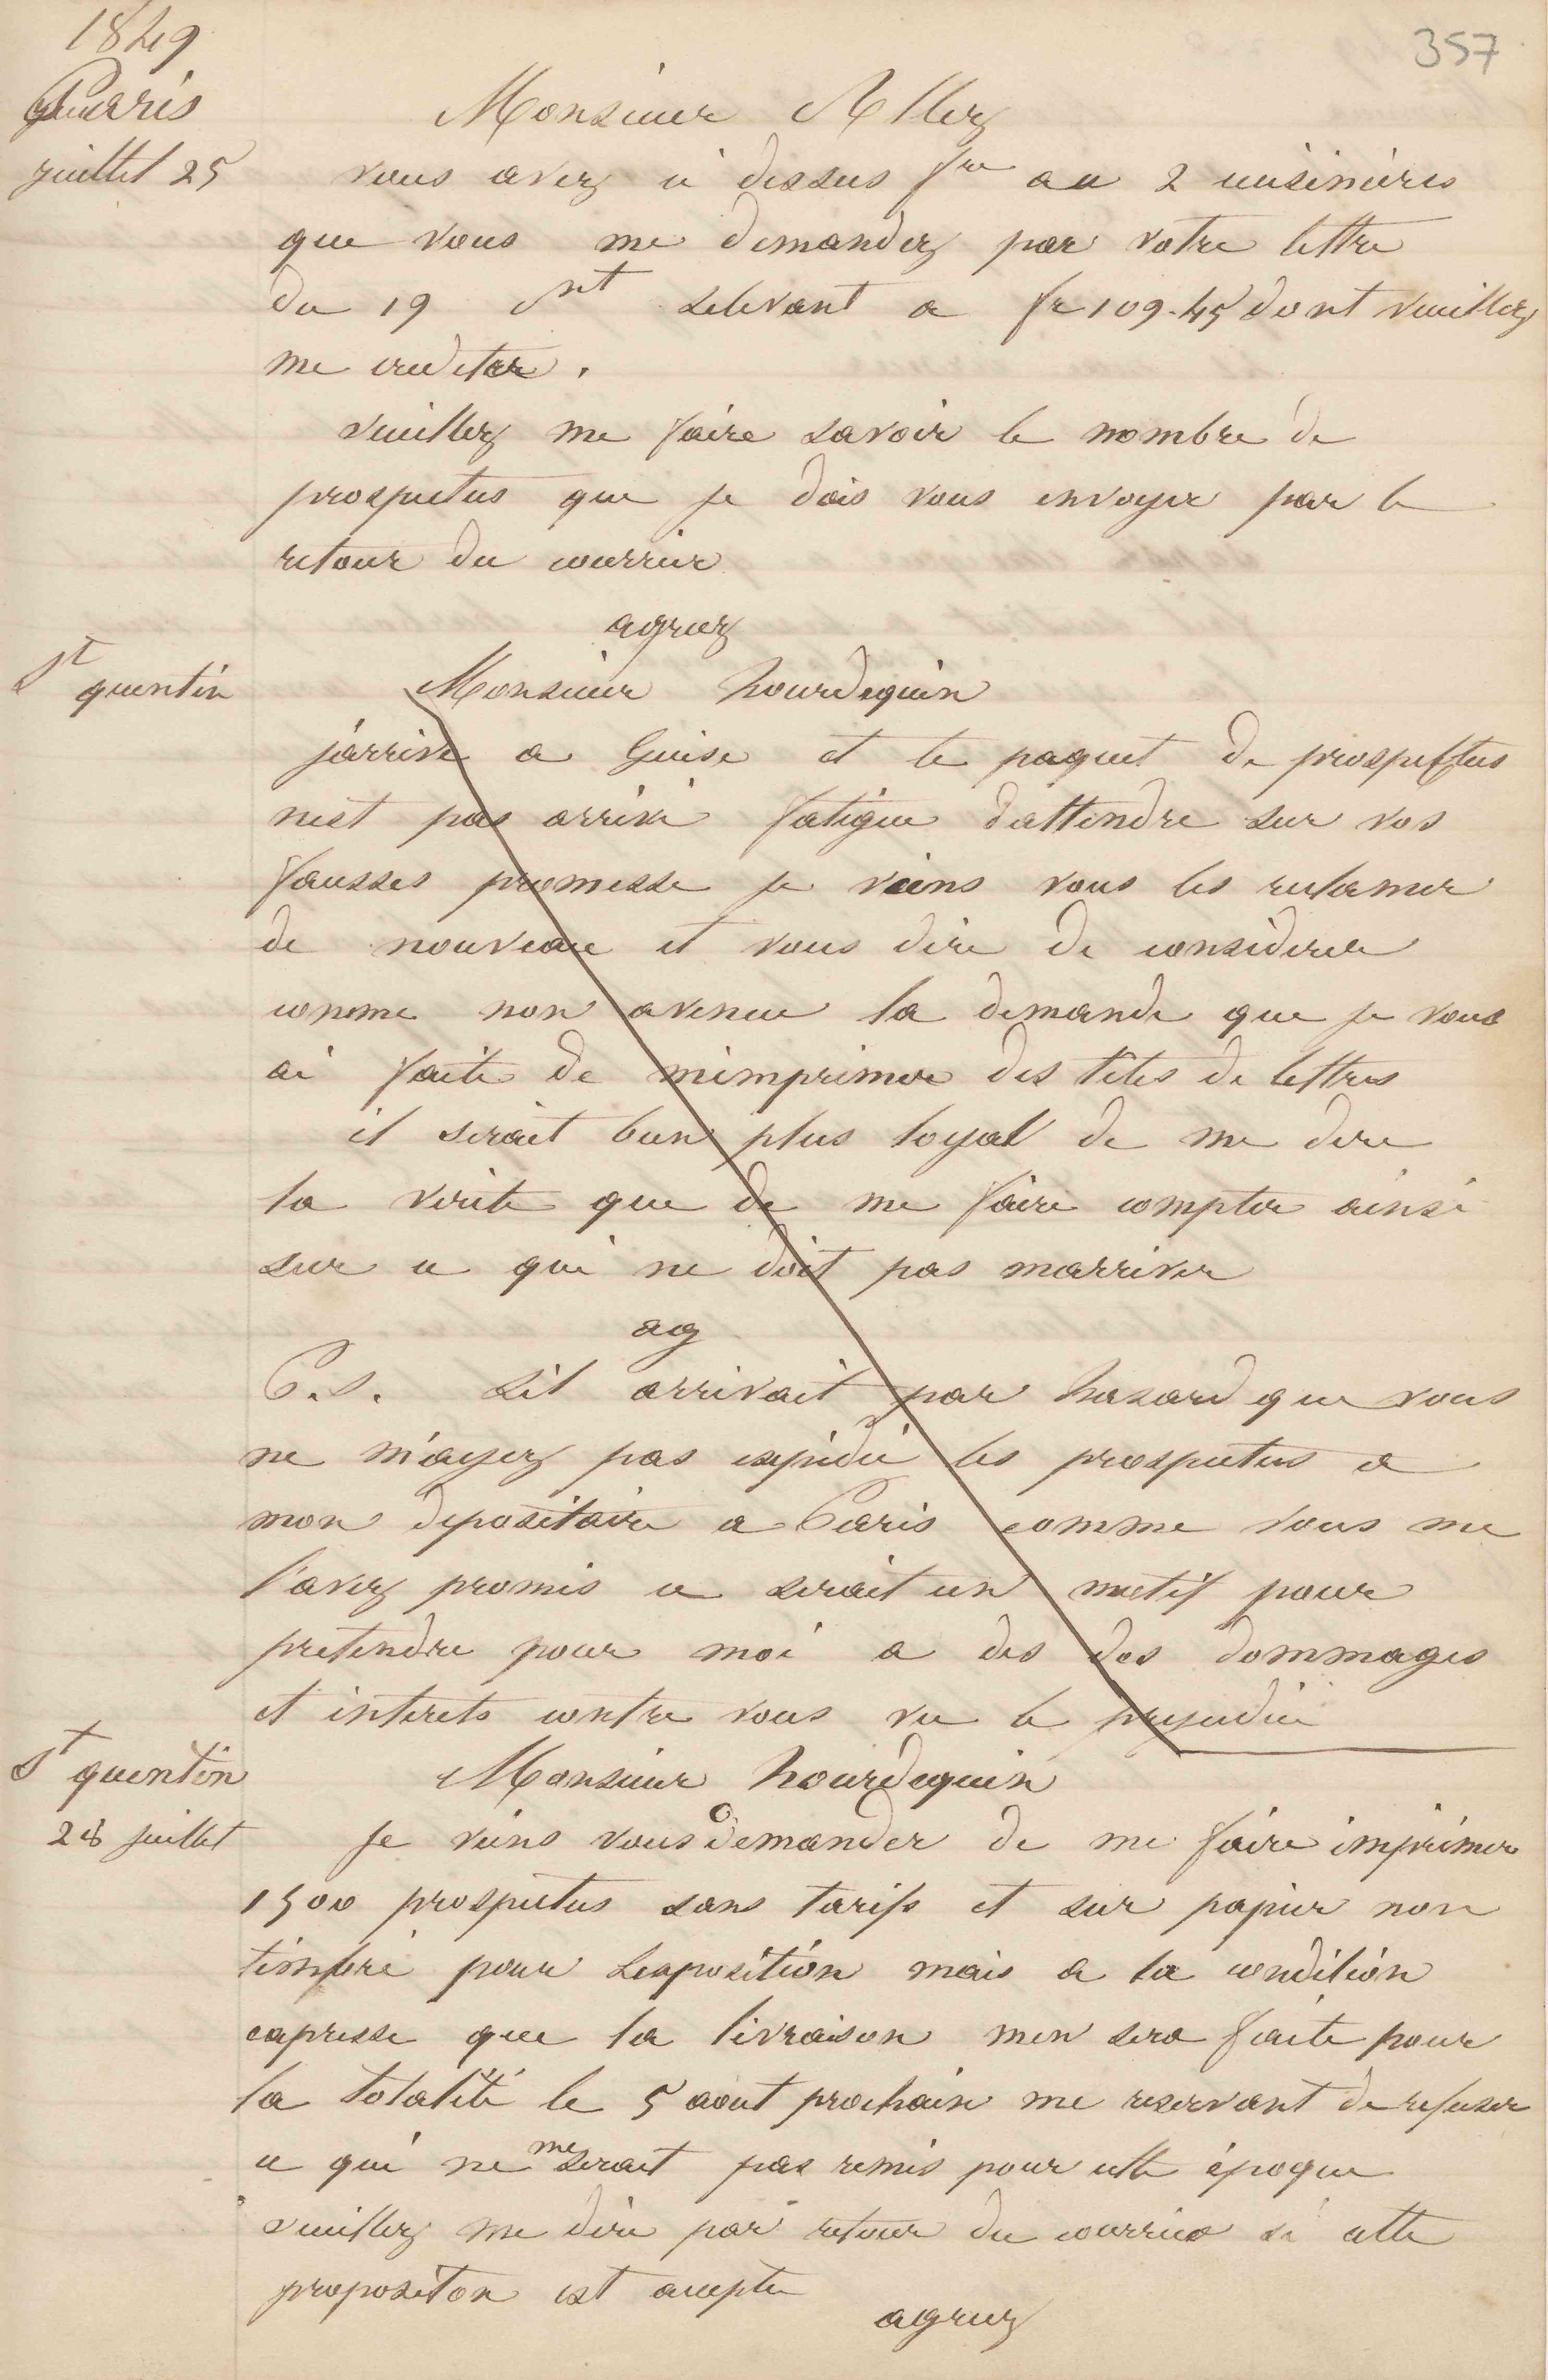 1849
357
Paris
Monsieur Allez
juillet 25
vous avez ci dessus fre au 2 cuisinieres
que vous me demandez par votre lettre
du 19 selevant a fr 109.45 dont veuillez
me crediter.
veuillez me faire savoir le nombre de
prospectus que je dois vous envoyer par le
retour du courrier
agreez
St quentin
Monsieur hourdequin
j'arrive a Guise et le paquet de prospectus
nest pas arrivé fatigué d'attendre sur vos
fausses promesse je viens vous les reclamer
de nouveau et vous dire de considerer
comme non avenue la demande que je vous
ai faite de m'imprimer des têtes de lettres
il serait bien plus loyal de me dire
la verite que de me faire compter ainsi
sur ce qui ne doit pas marriver
ag
P.S. Sil arrivait par hasard que vous
ne m'ayez pas expédié les prospectus a
mon depositaire a Paris comme vous me
l'avez promis ce serait un motif pour
pretendre pour moi a des des dommages
et interets contre vous vu le prejudice
St quentin
Monsieur hourdequin
28 juillet
Je viens vous demander de me faire imprimer
1500 prospectus sans tarifs et sur papier non
timbré pour lexposition mais a la condition
expresse que la livraison men sera faite pour
la totalité le 5 aout prochain me reservant de refuser
ce qui ne me serait pas remis pour cette époque
veuillez me dire par retour du courrier si cette
propositon est accepte
agreez